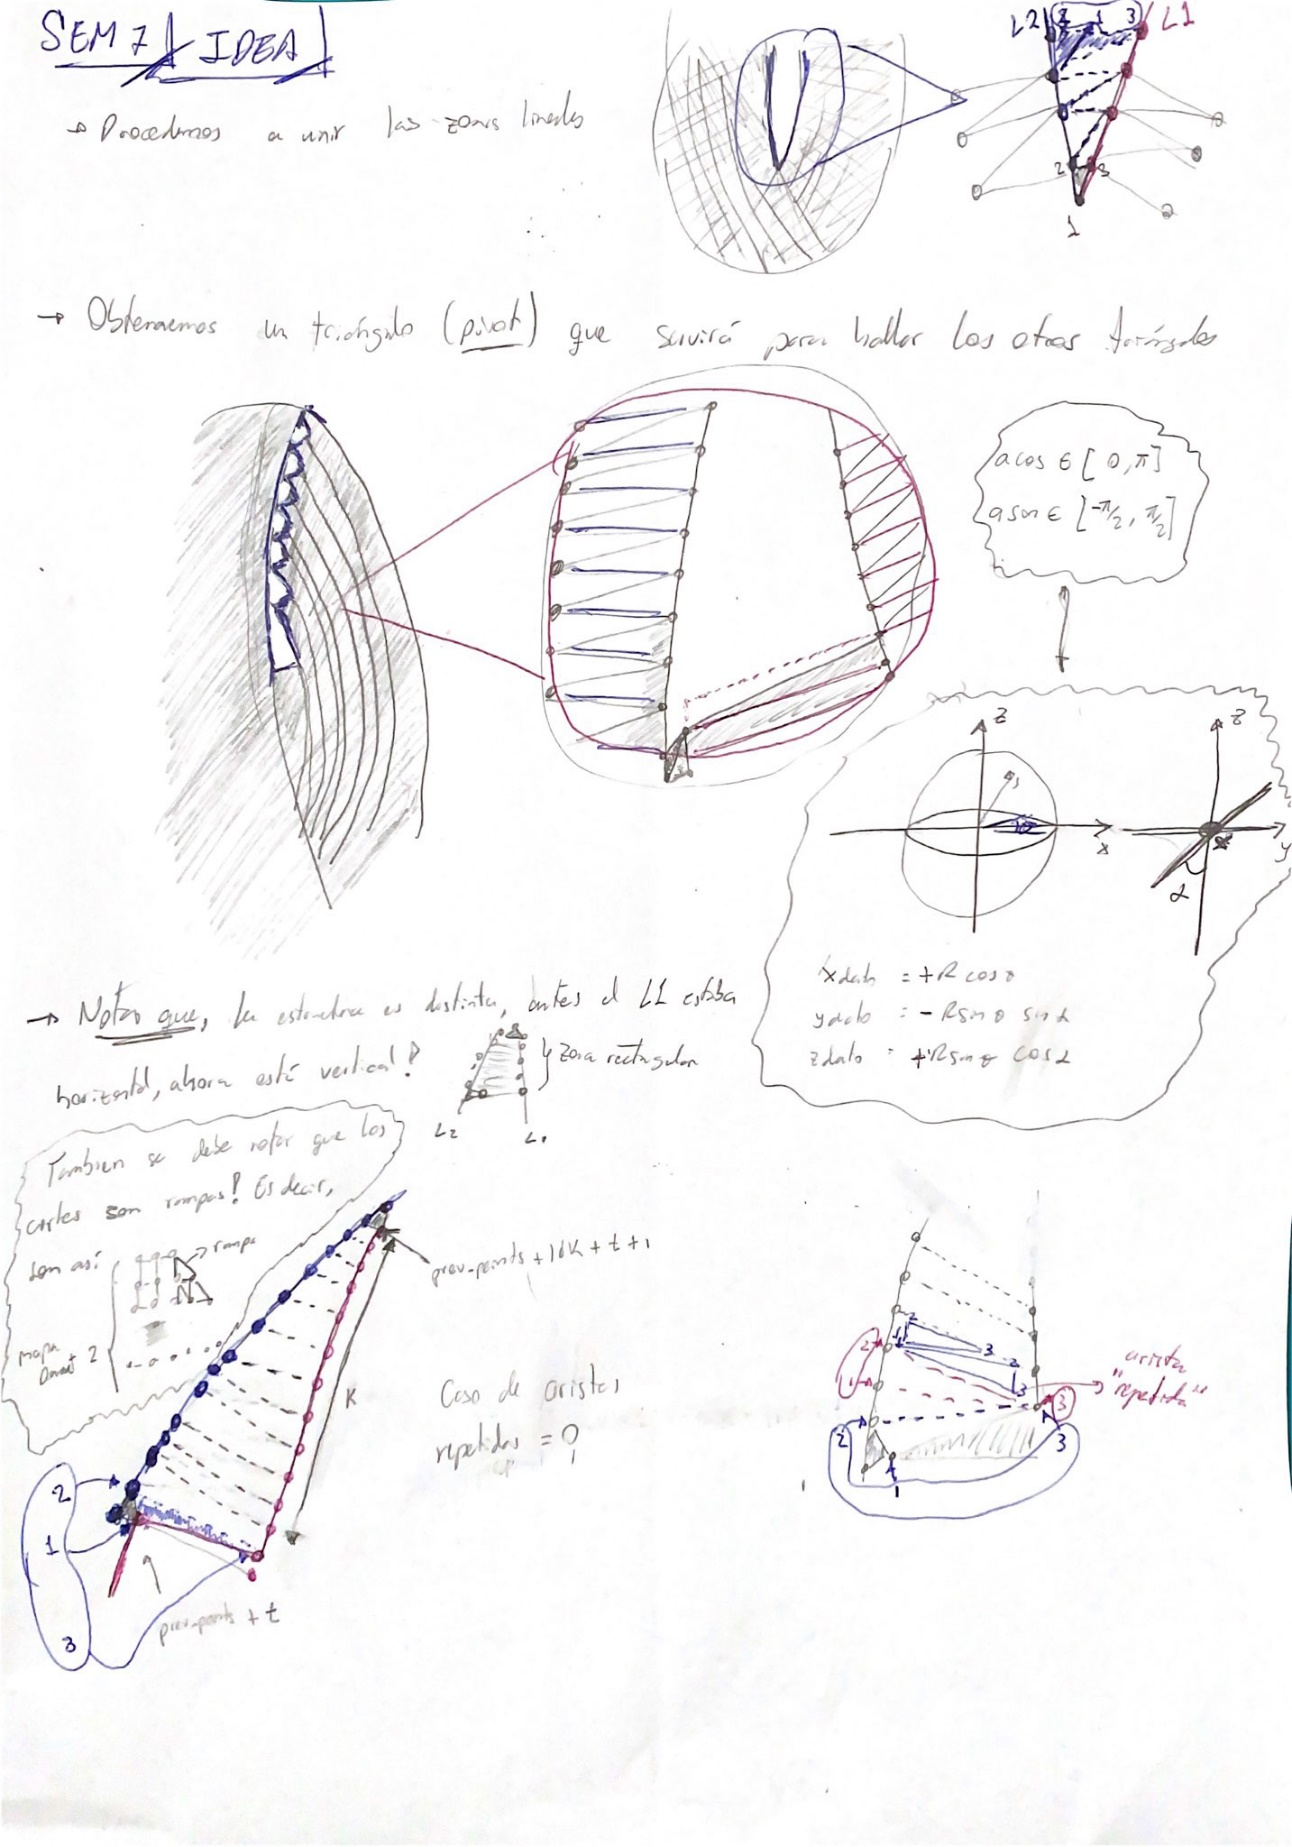 SEM 7 IDEA
L2 2 1 3 L1
→ Procedemos a unir las zonas lineales
2 3
1
→ Obtenemos un triángulo (pivot) que servirá para hallar los otros triángulos
acos ∈ [0, π]
asen ∈ [-π/2, π/2]
z
z
θ
x
y
α
x dato = +R cos θ
y dato = -R sin θ sin α
z dato = +R sin θ cos α
→ Notar que, la estructura es distinta, antes el L1 estaba
horizontal, ahora está vertical!
} zona rectangular
L2 L1
También se debe notar que los
cortes son rampas! Es decir,
son así
→ rampa
mapa
prev-points + 16K + t + 1
K
Caso de aristas
repetidas =
2
1
3
prev-points + t
2
3
1
2
3
2
1
3
arista
"repetida"
2
3
1